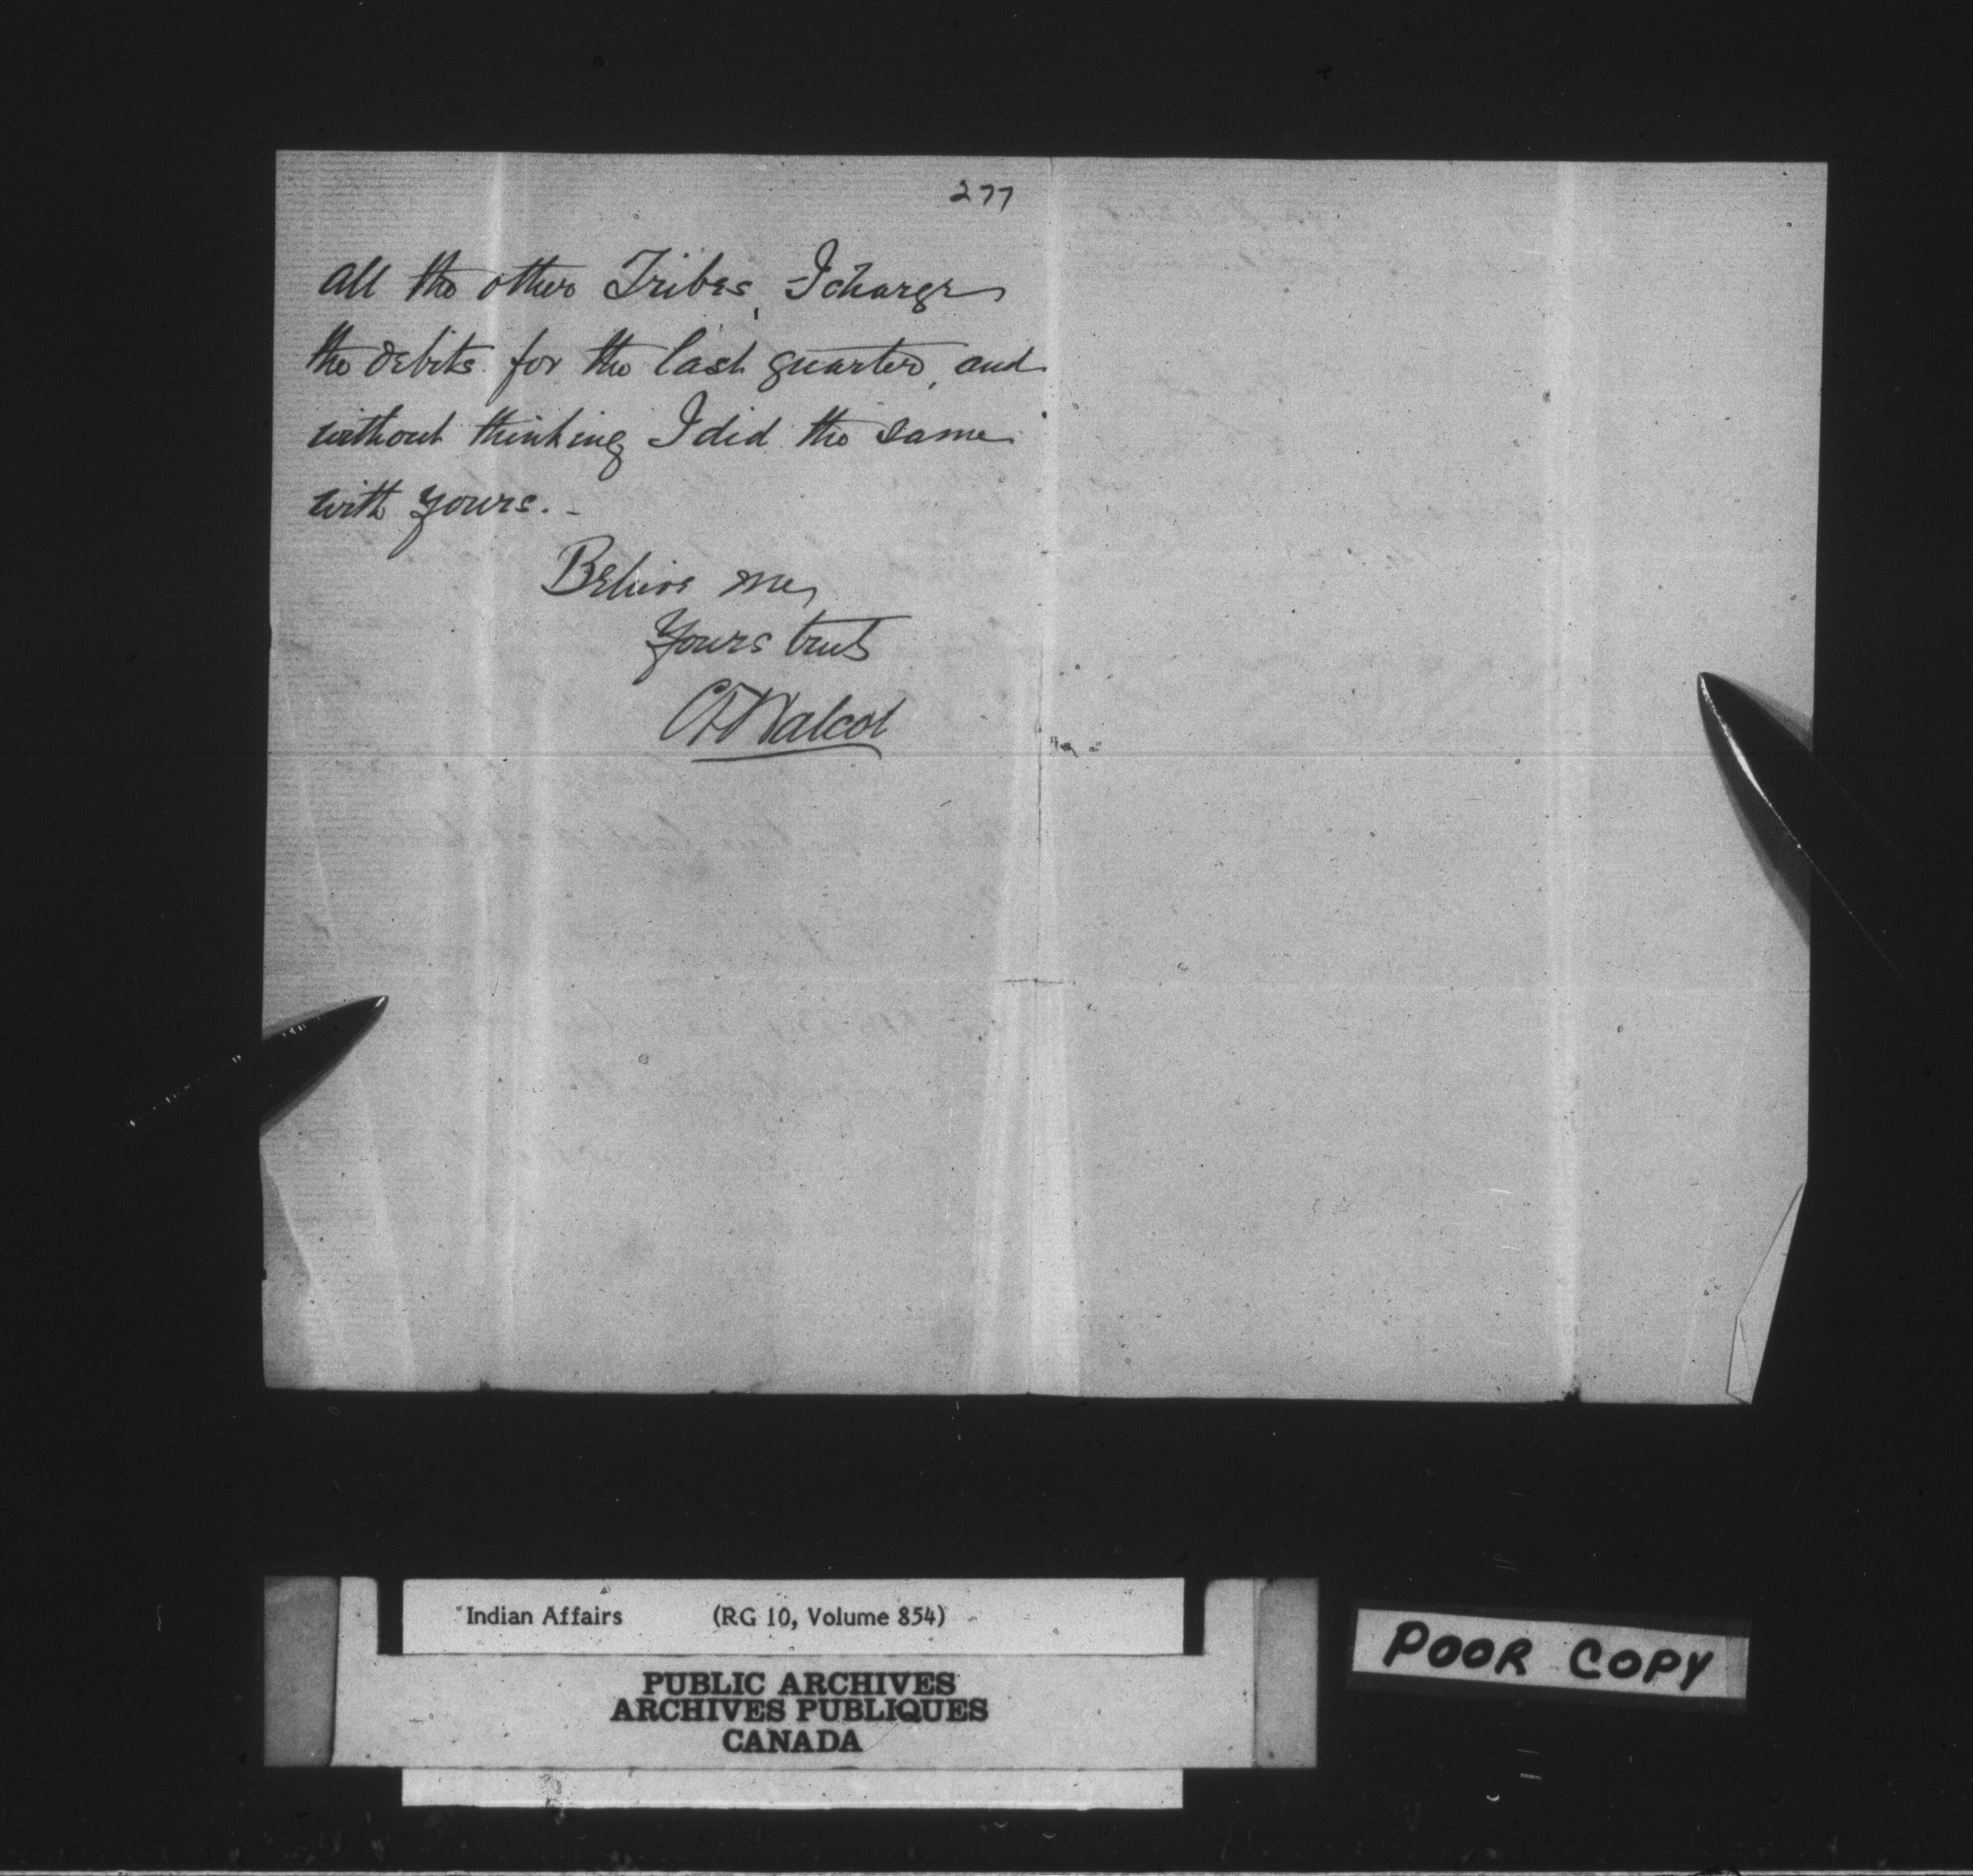 277
all the other Tribes, I charge
the debits for the last quarter, and
without thinking I did the same
with yours. -
Believe me,
Yours truly
C T Walcot
Indian Affairs (RG 10, Volume 854)
PUBLIC ARCHIVES
ARCHIVES PUBLIQUES
CANADA
POOR COPY